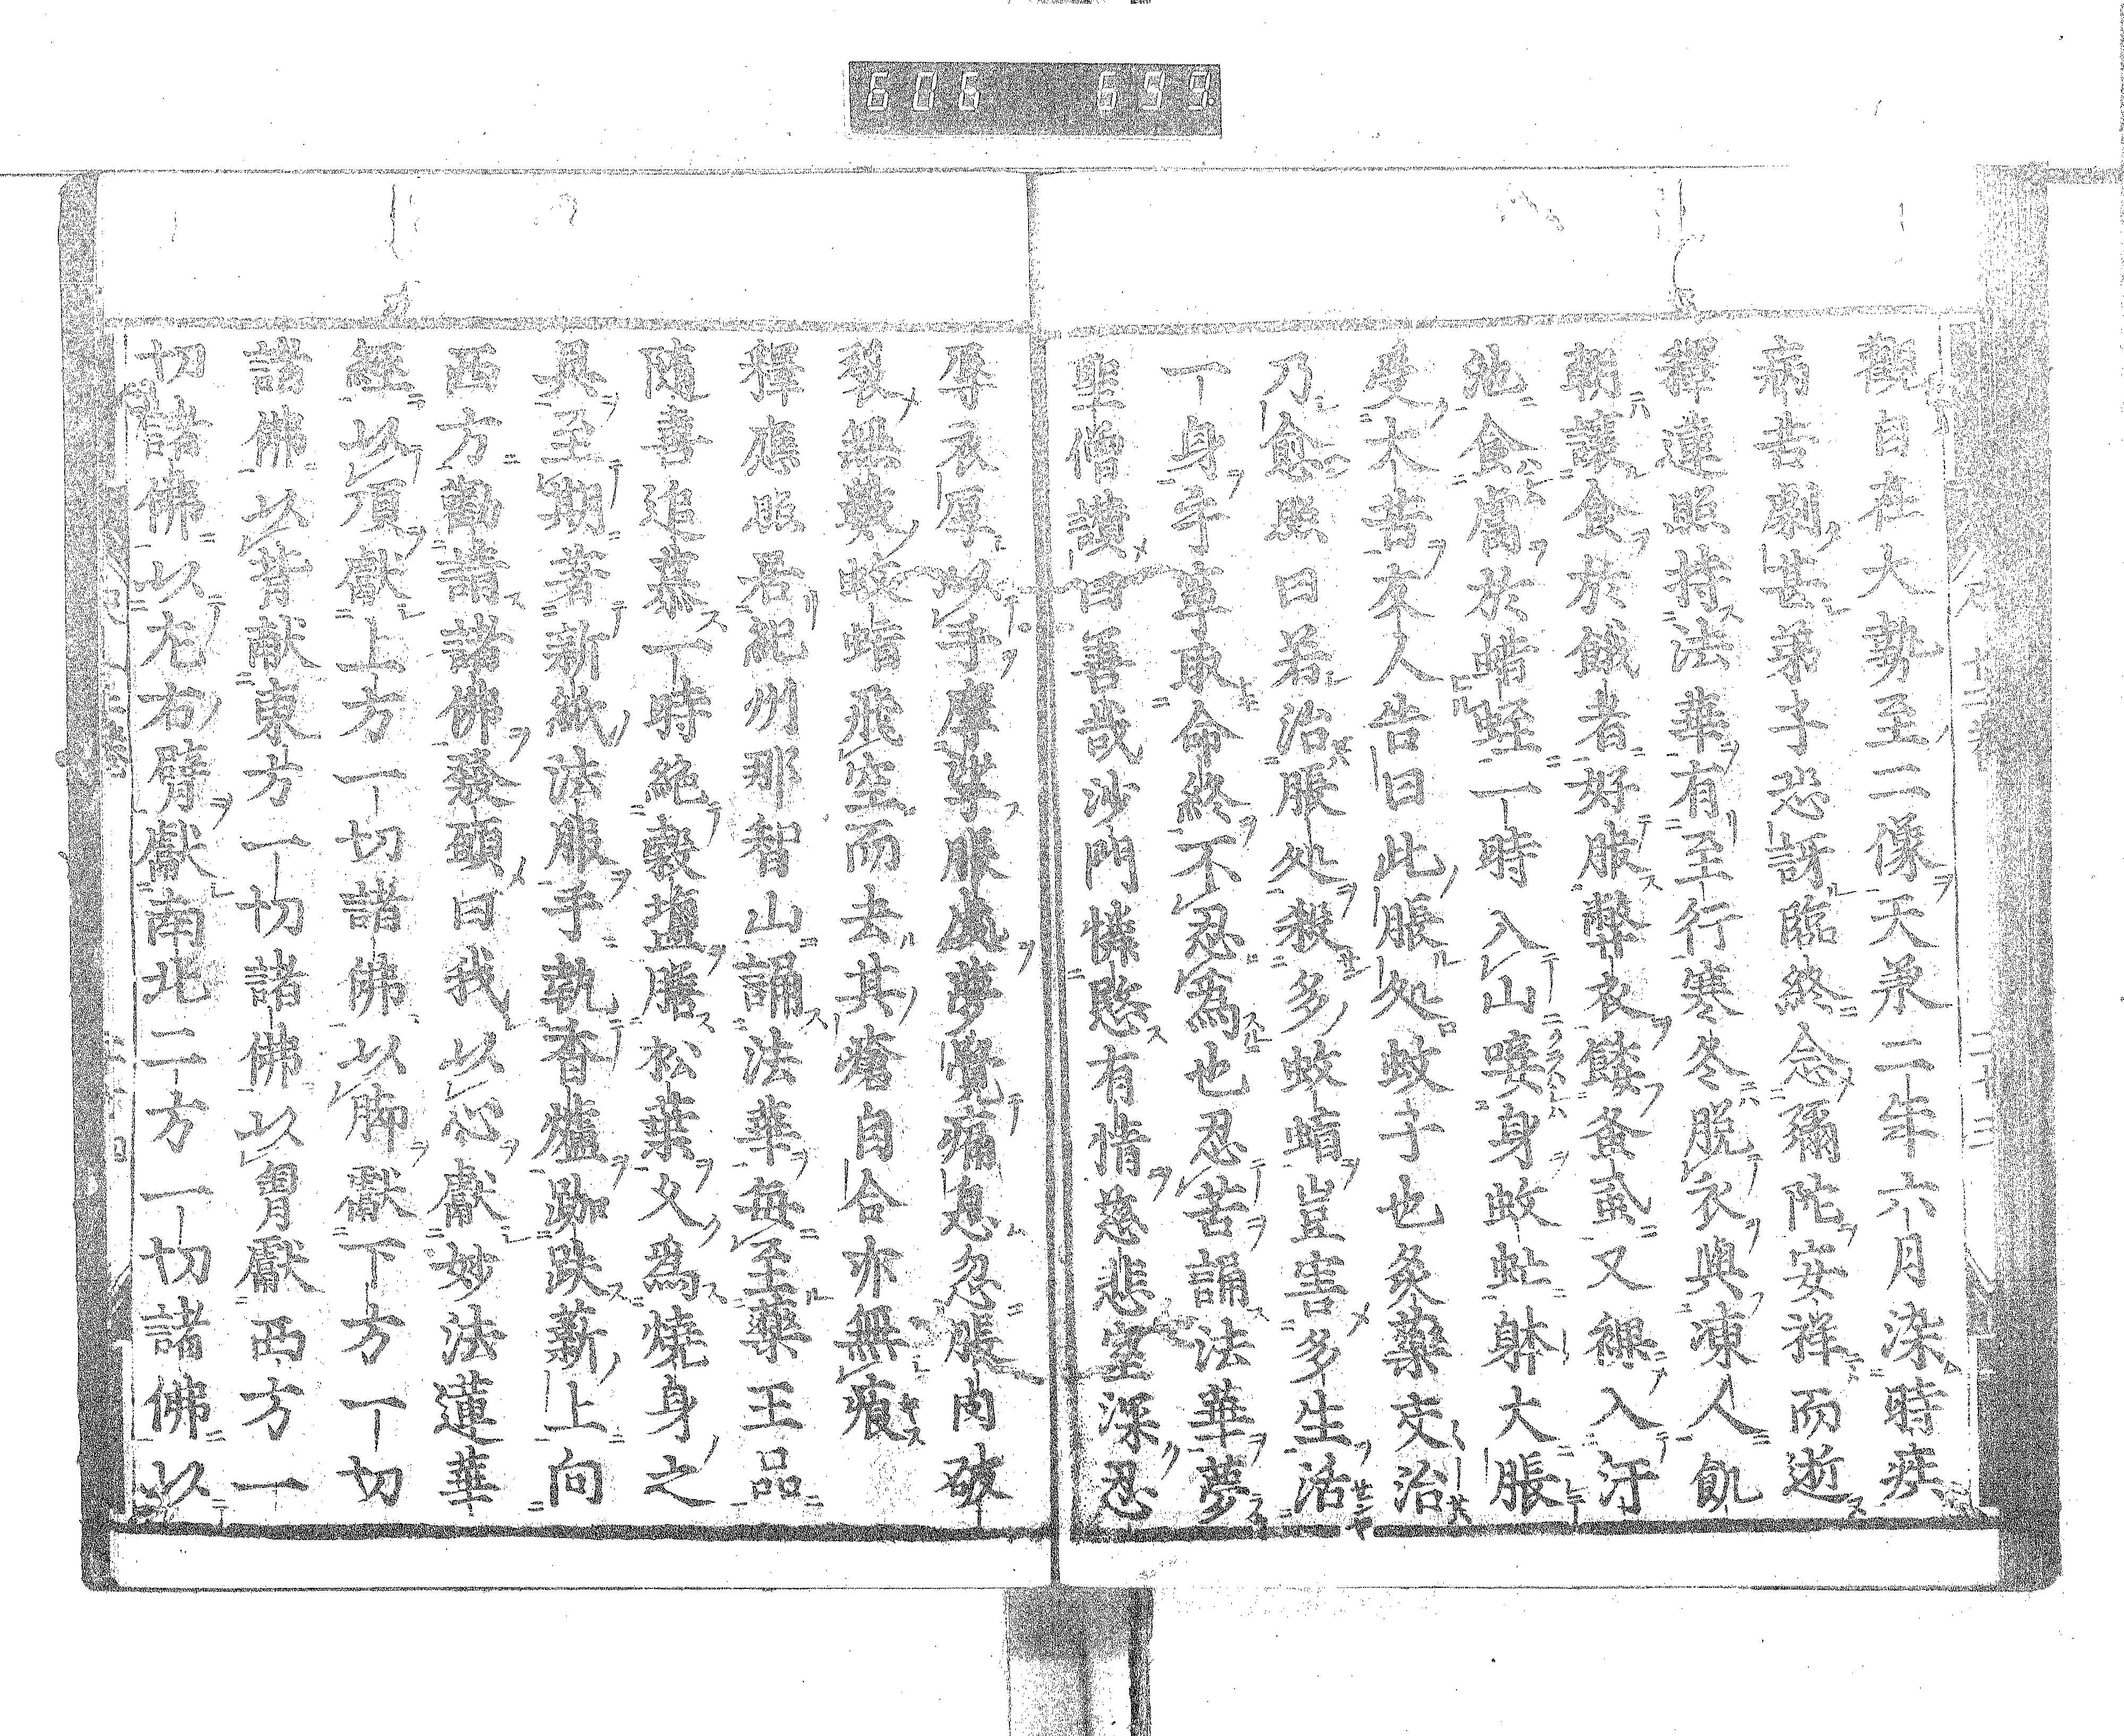 606 699
觀自在大勢至二像天承二年六月染時疾
病苦劇甚弟子恐訝臨終念彌陀安祥而逝
釋蓮照持法華有至行寒冬脫衣與凍人飢
朝讓食於餓者好服弊衣餧蚤虱又裸入汙
池食膚於蜡蛭一時入山喂身蚊虻躰大脹
受大苦友人告曰此脹処蚊子也灸藥交治
乃愈照曰若治脹処殺多蚊蝱豈害多生活
一身乎卒取命終不忍爲也忍苦誦法華夢
聖僧讚曰善哉沙門憐愍有情慈悲室深忍
辱衣厚以手摩挲脹處夢覺痛息忽脹肉破
裂無數蚊蝱飛空而去其瘡自合亦無痕
釋應照居紀州那智山誦法華每至藥王品
隨喜追慕一時絶穀鹽膳松葉久爲燒身之
具至期著新紙法服手執香爐跏趺薪上向
西方勸請諸佛發願曰我以心獻妙法蓮華
經以頂獻上方一切諸佛以脚獻下方一切
諸佛以背献東方一切諸佛以胷獻西方一
切諸佛以左右臂獻南北二方一切諸佛以